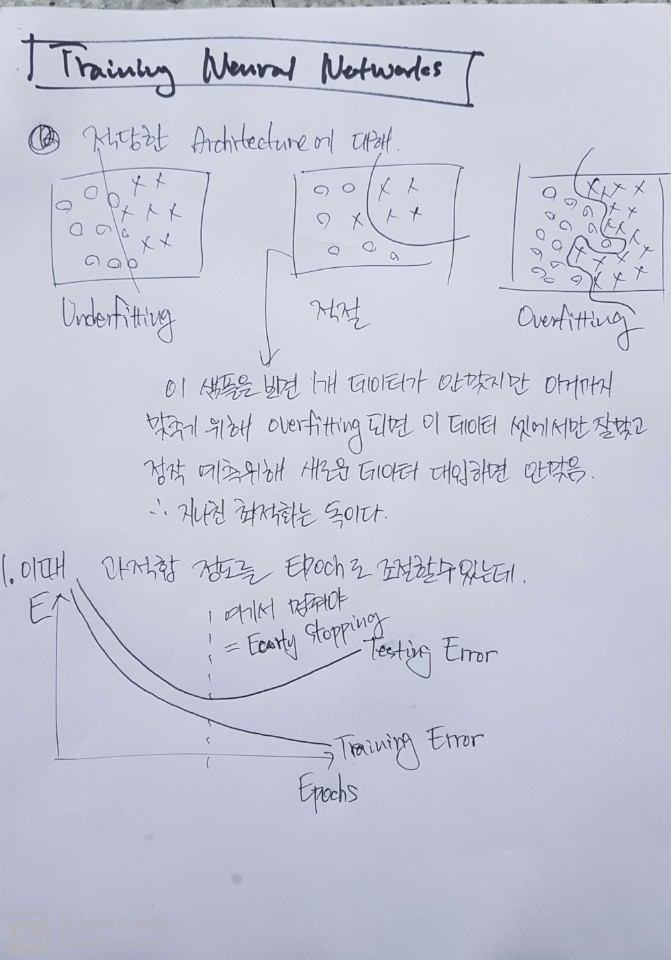 Training Neural Networks
적당한 Architecture에 대해.
Underfitting
적절
Overfitting
이 샘플을 보면 1개 데이터가 안맞지만 이거까지
맞추기 위해 overfitting 되면 이 데이터 셋에서만 잘맞고
정작 예측위해 새로운 데이터 대입하면 안맞음.
∴ 지나친 최적화는 독이다.
1. 이때 과적합 정도를 Epoch로 조절할수있는데.
E
여기서 멈춰야
= Early Stopping
Testing Error
Training Error
Epochs